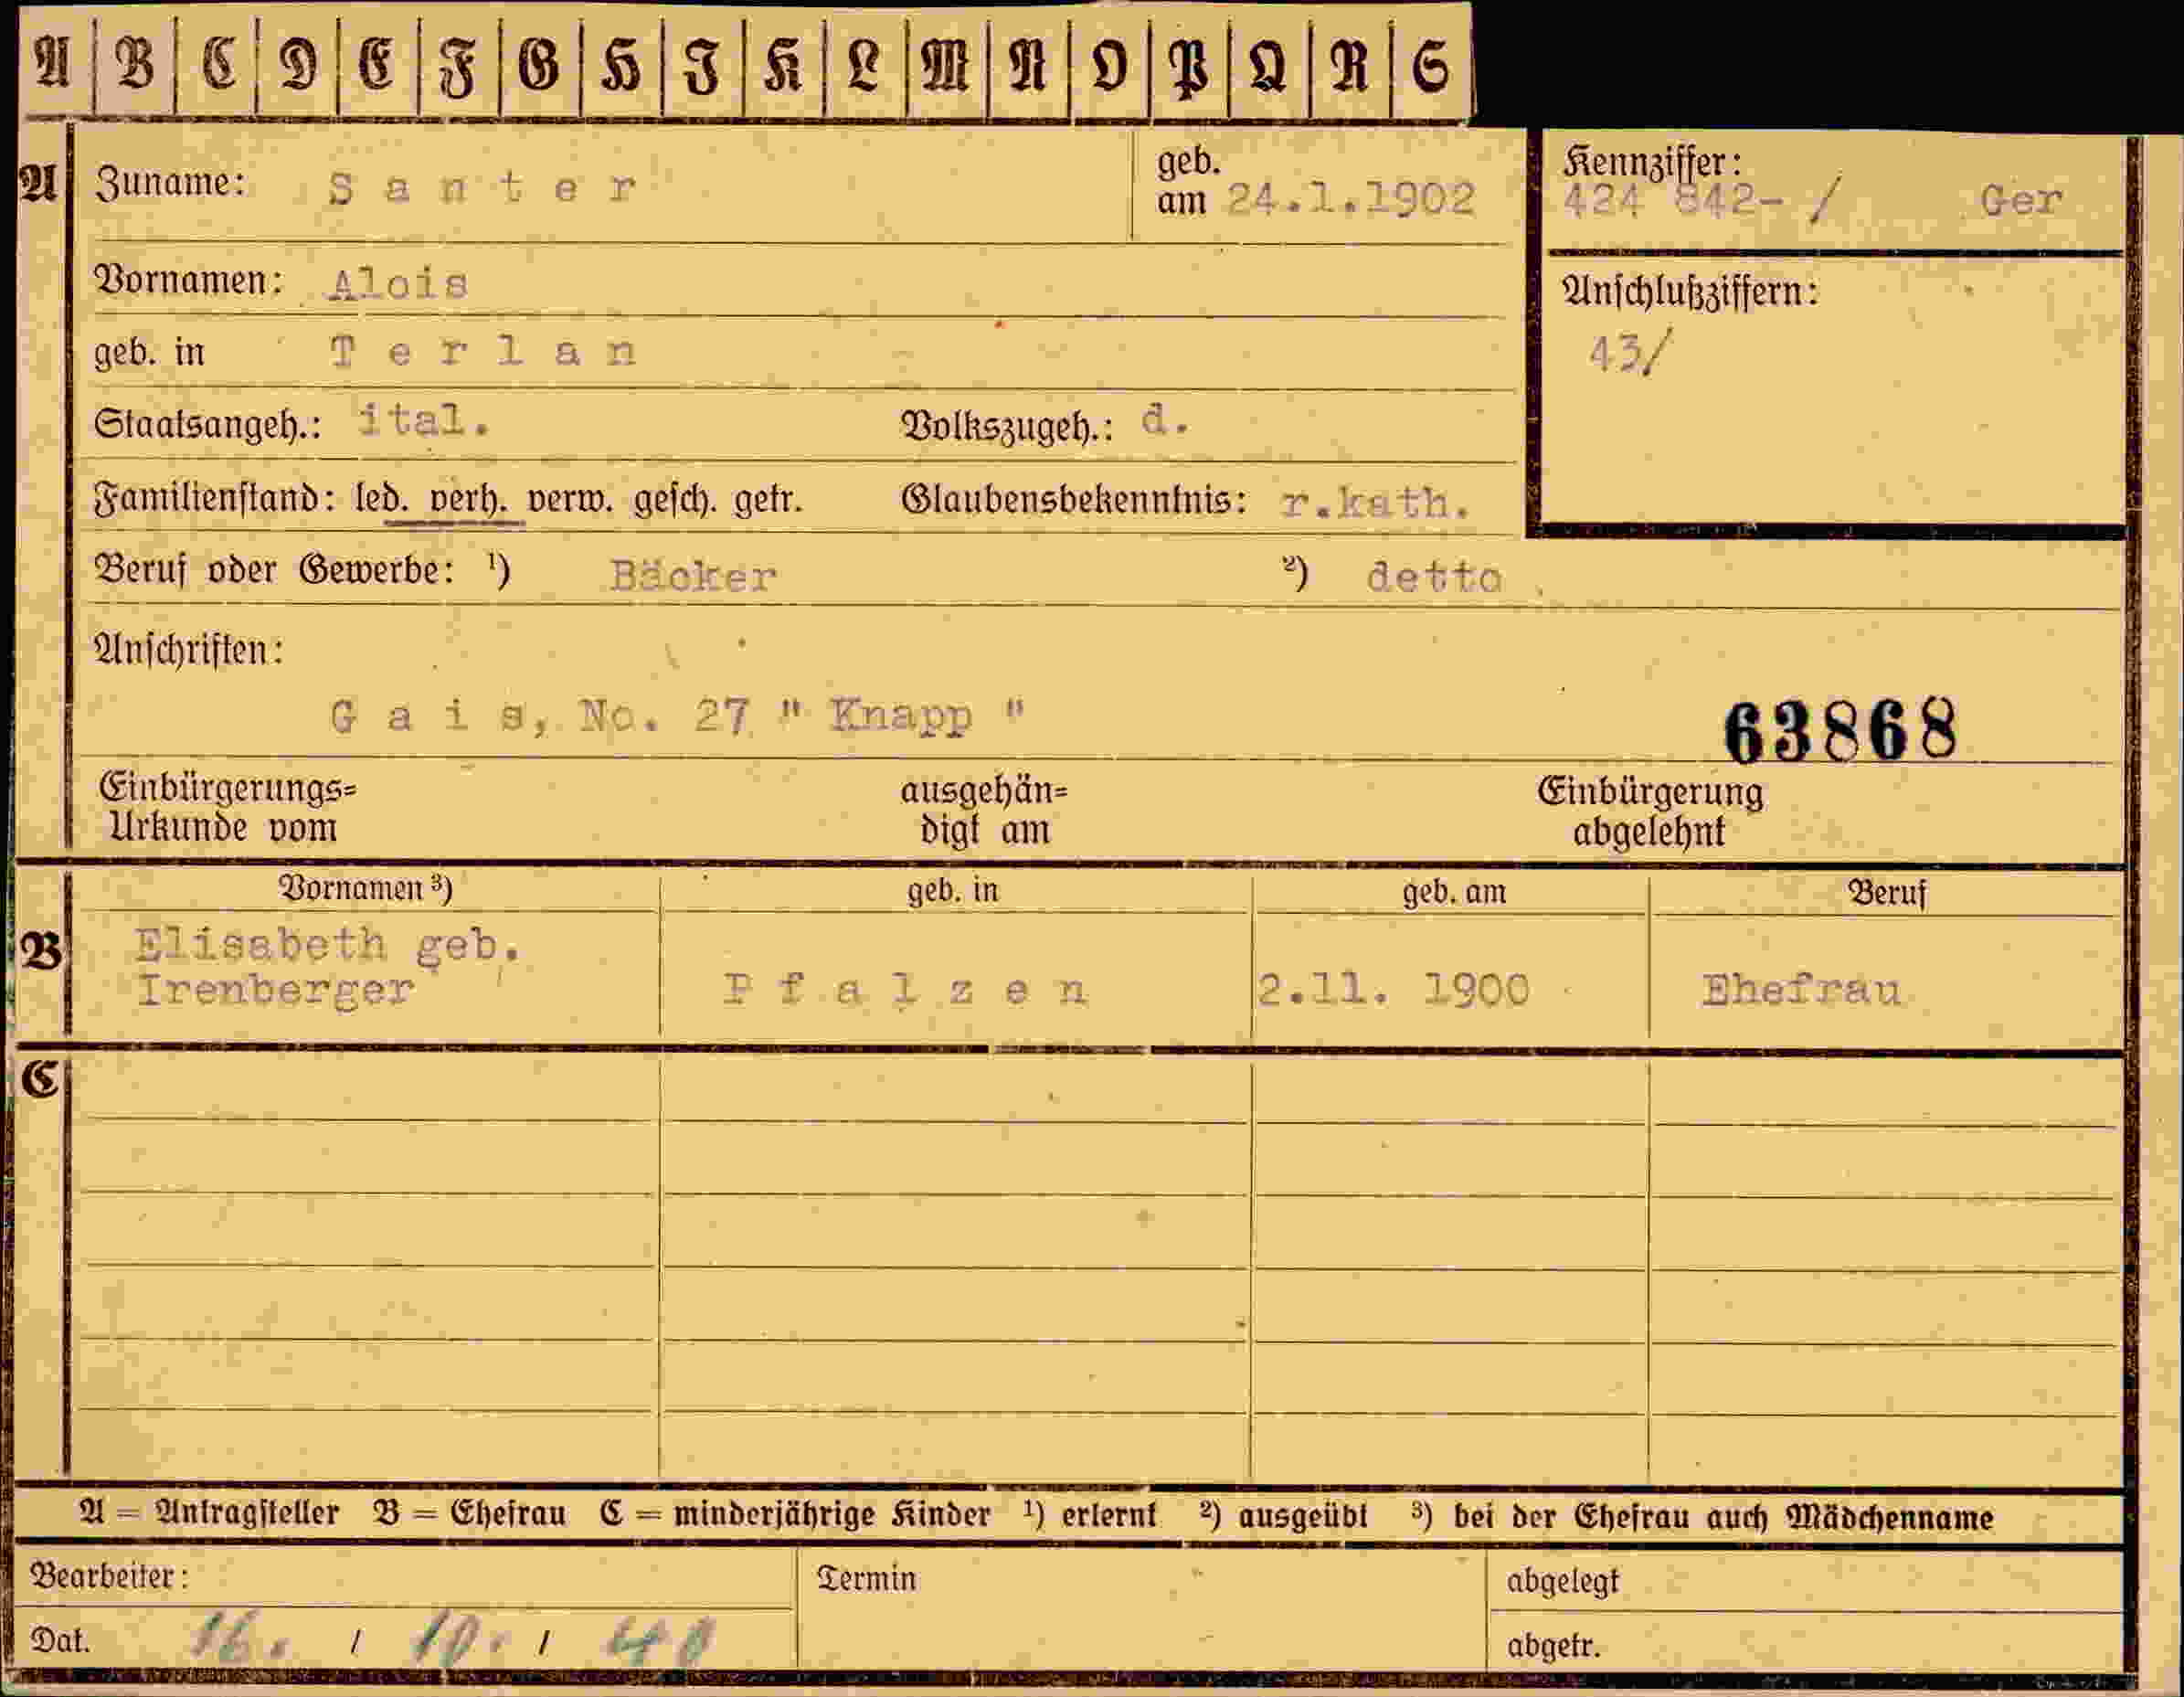 A B C D E F G H I K L M N O P Q R S
A Zuname: Santer geb. am 24.1.1902 Kennziffer: 424 842- / Ger
Vornamen: Alois Anschlußziffern:
geb. in Terlan 43/
Staatsangeh.: ital. Volkszugeh.: d.
Familienstand: led. verh. verw. gesch. getr. Glaubensbekenntnis: r.kath.
Beruf oder Gewerbe: ¹) Bäcker ²) detto
Anschriften:
Gais, No. 27 " Knapp " 63868
Einbürgerungs= ausgehän= Einbürgerung
Urkunde vom digt am abgelehnt
Vornamen ³) geb. in geb. am Beruf
B Elisabeth geb.
Irenberger Pfalzen 2.11. 1900 Ehefrau
C
A = Antragsteller B = Ehefrau C = minderjährige Kinder ¹) erlernt ²) ausgeübt ³) bei der Ehefrau auch Mädchenname
Bearbeiter: Termin abgelegt
Dat. 16. / 10. / 40 abgetr.